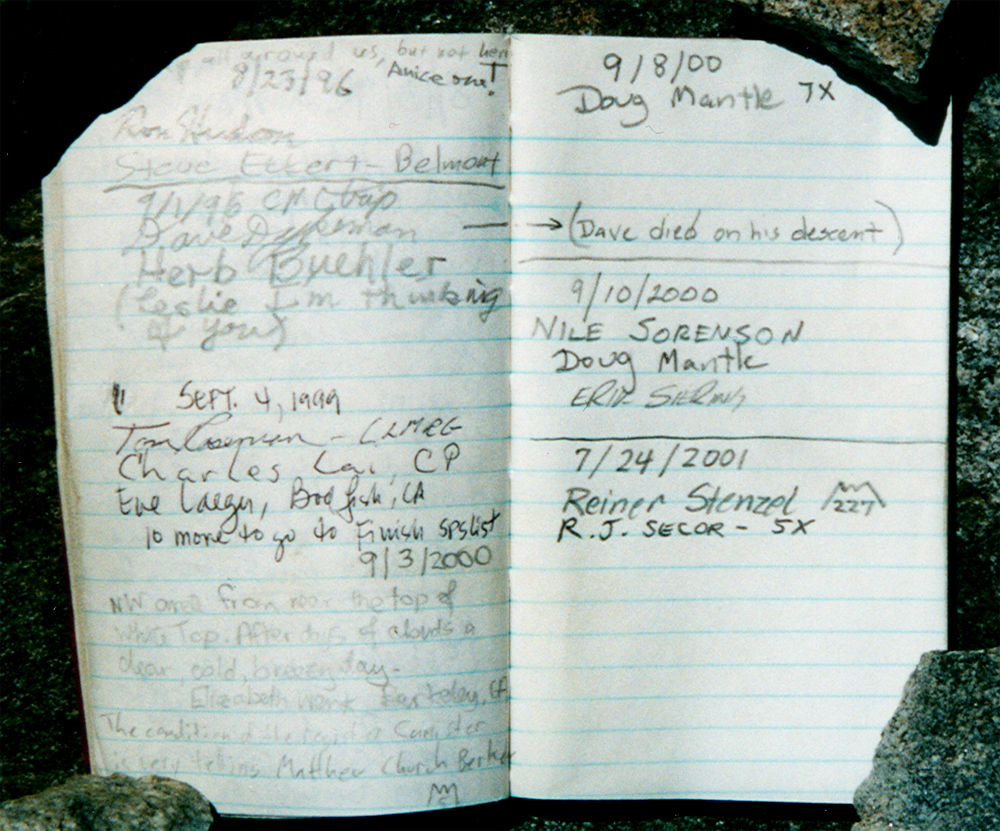 all around us, but not here
8/23/96 A nice one!
Ron Hudson
Steve Eckert - Belmont
9/1/96 CMC trip
Dave Dykeman
Herb Buehler
(Leslie I'm thinking
of you)
Sept. 4, 1999
- CLMRG
Charles Lai, CP
Eve Laeger, Bodfish, CA
10 more to go to Finish SPS list
9/3/2000
NW from near the top of
White Top. After days of clouds a
clear, cold, breezy day -
Elizabeth Wenk Berkeley, CA
The condition of the register canister
is very telling Matthew Church
9/8/00
Doug Mantle 7X
→ (Dave died on his descent)
9/10/2000
NILE SORENSON
Doug Mantle
7/24/2001
Reiner Stenzel 227
R.J. SECOR - 5X